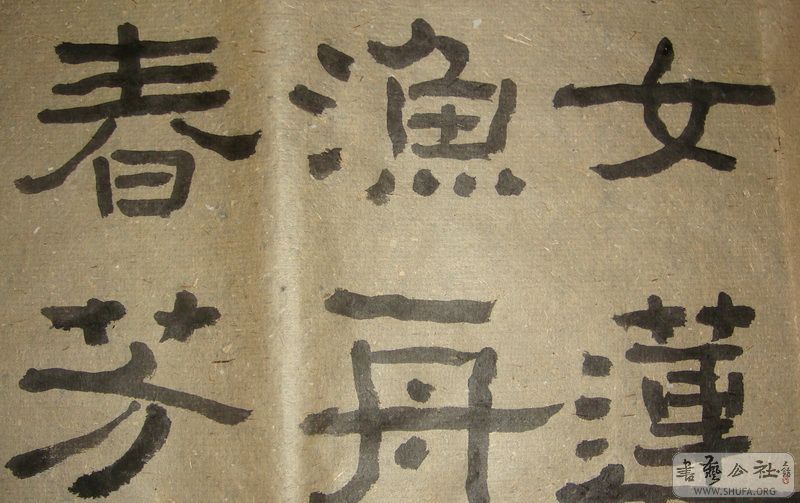 女蓮
漁舟
春芳
書藝公社
WWW.SHUFA.ORG